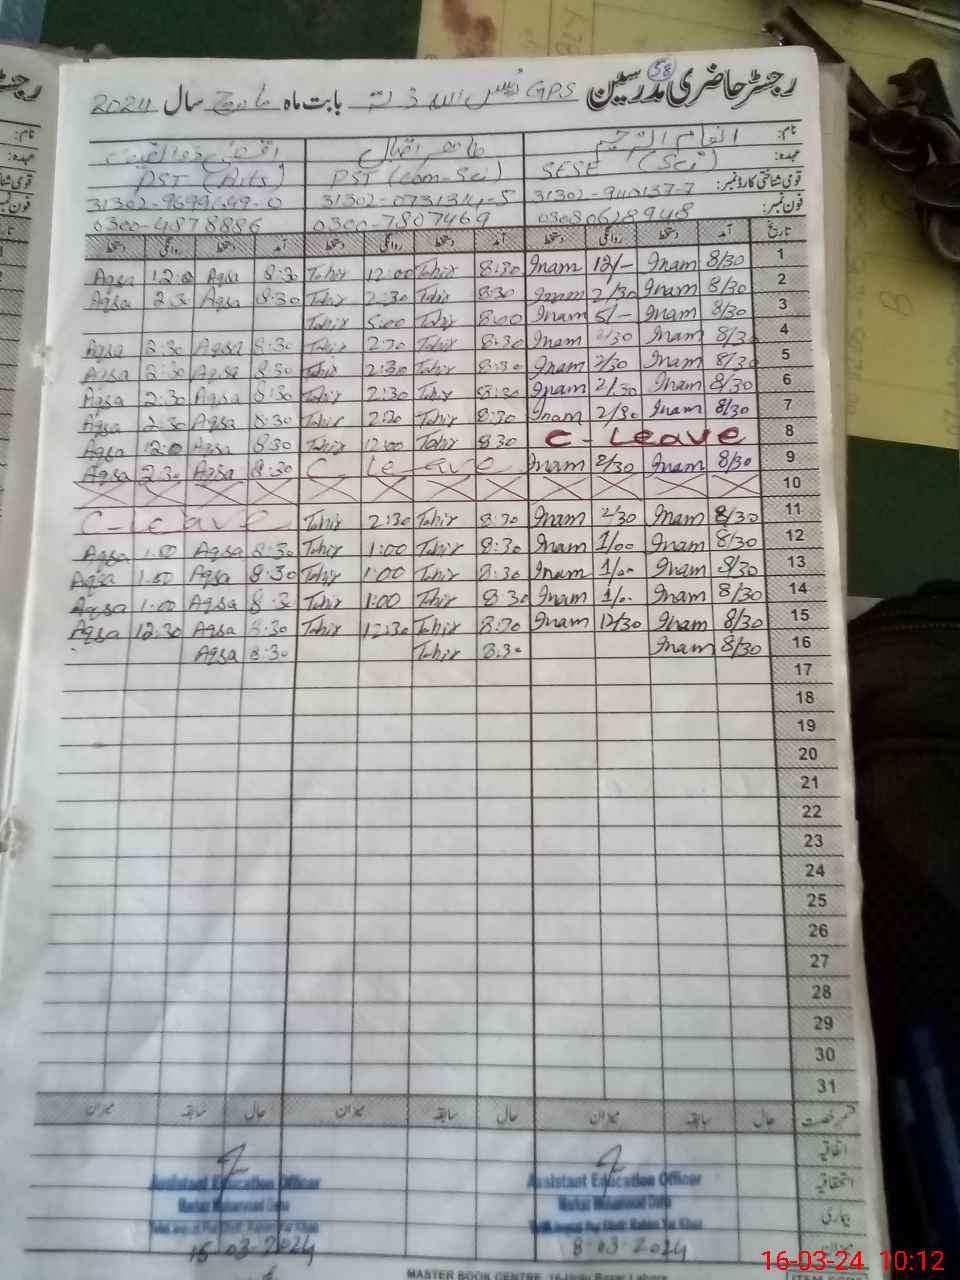 رجسٹر حاضری مدرسین 58 GPS بابت ماہ مارچ سال 2024
نام:
عہدہ: SESE (Sci) PST (Com-Sci) PST (Arts)
قومی شناختی کارڈ نمبر: 31302-9110137-7 31302-0731314-5 31302-9699649-0
فون نمبر: 03030628948 0300-7807469 0300-4878886
تاریخ آمد دستخط روانگی دستخط آمد دستخط روانگی دستخط آمد دستخط روانگی دستخط
1 8/30 Inam 12/- Inam 8:30 Tahir 12:00 Tahir 8:30 Aqsa 12:0 Aqsa
2 8/30 Inam 2/30 Inam 8:30 Tahir 2:30 Tahir 8:30 Aqsa 2:30 Aqsa
3 8/30 Inam 5/- Inam 8:00 Tahir 5:00 Tahir
4 8/30 Inam 2/30 Inam 8:30 Tahir 2:30 Tahir 8:30 Aqsa 2:30 Aqsa
5 8/30 Inam 2/30 Inam 8:30 Tahir 2:30 Tahir 8:30 Aqsa 2:30 Aqsa
6 8/30 Inam 2/30 Inam 8:30 Tahir 2:30 Tahir 8:30 Aqsa 2:30 Aqsa
7 8/30 Inam 2/30 Inam 8:30 Tahir 2:30 Tahir 8:30 Aqsa 2:30 Aqsa
8 C-Leave 8:30 Tahir 12:00 Tahir 8:30 Aqsa 12:0 Aqsa
9 8/30 Inam 2/30 Inam C-Leave 8:30 Aqsa 2:30 Aqsa
10
11 8/30 Inam 2/30 Inam 8:30 Tahir 2:30 Tahir C-Leave
12 8/30 Inam 1/00 Inam 8:30 Tahir 1:00 Tahir 8:30 Aqsa 1:00 Aqsa
13 8/30 Inam 1/00 Inam 8:30 Tahir 1:00 Tahir 8:30 Aqsa 1:00 Aqsa
14 8/30 Inam 1/00 Inam 8:30 Tahir 1:00 Tahir 8:30 Aqsa 1:00 Aqsa
15 8/30 Inam 12/30 Inam 8:30 Tahir 12:30 Tahir 8:30 Aqsa 12:30 Aqsa
16 8/30 Inam 8:30 Tahir 8:30 Aqsa
17
18
19
20
21
22
23
24
25
26
27
28
29
30
31
قسم رخصت حال سابقہ میزان حال سابقہ میزان حال سابقہ میزان
اتفاقیہ
استحقاقیہ
بیماری
میزان
Assistant Education Officer
Markaz Muhammad
8-03-2024
Assistant Education Officer
Markaz Muhammad
15-03-2024
MASTER BOOK CENTRE
16-03-24 10:12